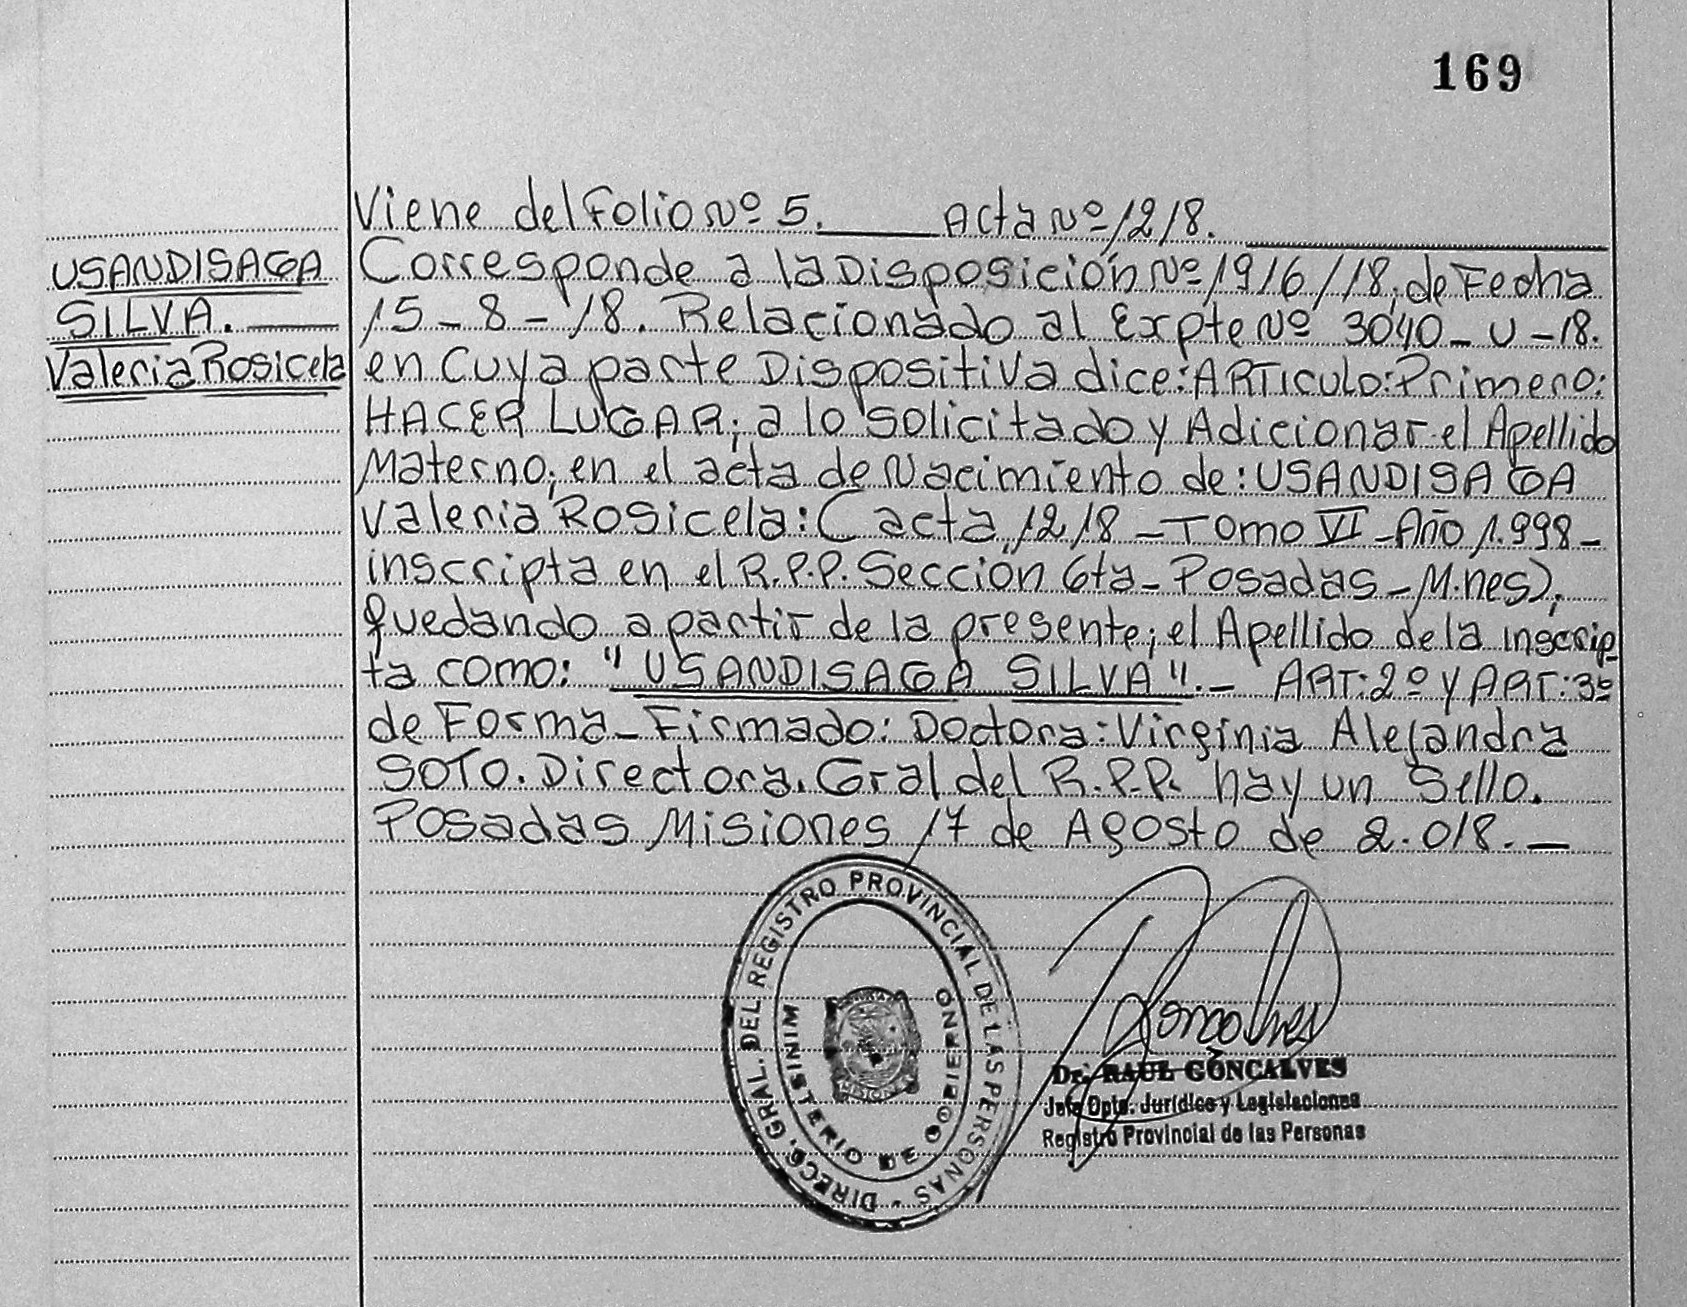 169
Viene del Folio Nº 5. Acta Nº 1218.
USANDISAGA
SILVA.
Valeria Rosicela
Corresponde a la Disposición Nº 1916/18, de Fecha
15-8-18. Relacionado al Expte Nº 3040-U-18.
en Cuya parte Dispositiva dice: ARTICULO: Primero:
HACER LUGAR; a lo Solicitado y Adicionar el Apellido
Materno; en el acta de Nacimiento de: USANDISAGA
Valeria Rosicela: (acta 1218 - Tomo VI - Año 1.998 -
inscripta en el R.P.P. Sección 6ta - Posadas - M.nes);
quedando a partir de la presente; el Apellido de la inscrip
ta como: "USANDISAGA SILVA".- ART: 2º y ART: 3º
de Forma - Firmado: Doctora: Virginia Alejandra
SOTO. Directora. Gral del R.P.P. hay un Sello.
Posadas Misiones 17 de Agosto de 2.018.-
DIRECC. GRAL. DEL REGISTRO PROVINCIAL DE LAS PERSONAS -
MINISTERIO DE GOBIERNO
Dr. RAUL GONCALVES
Jefe Dpto. Jurídico y Legislaciones
Registro Provincial de las Personas